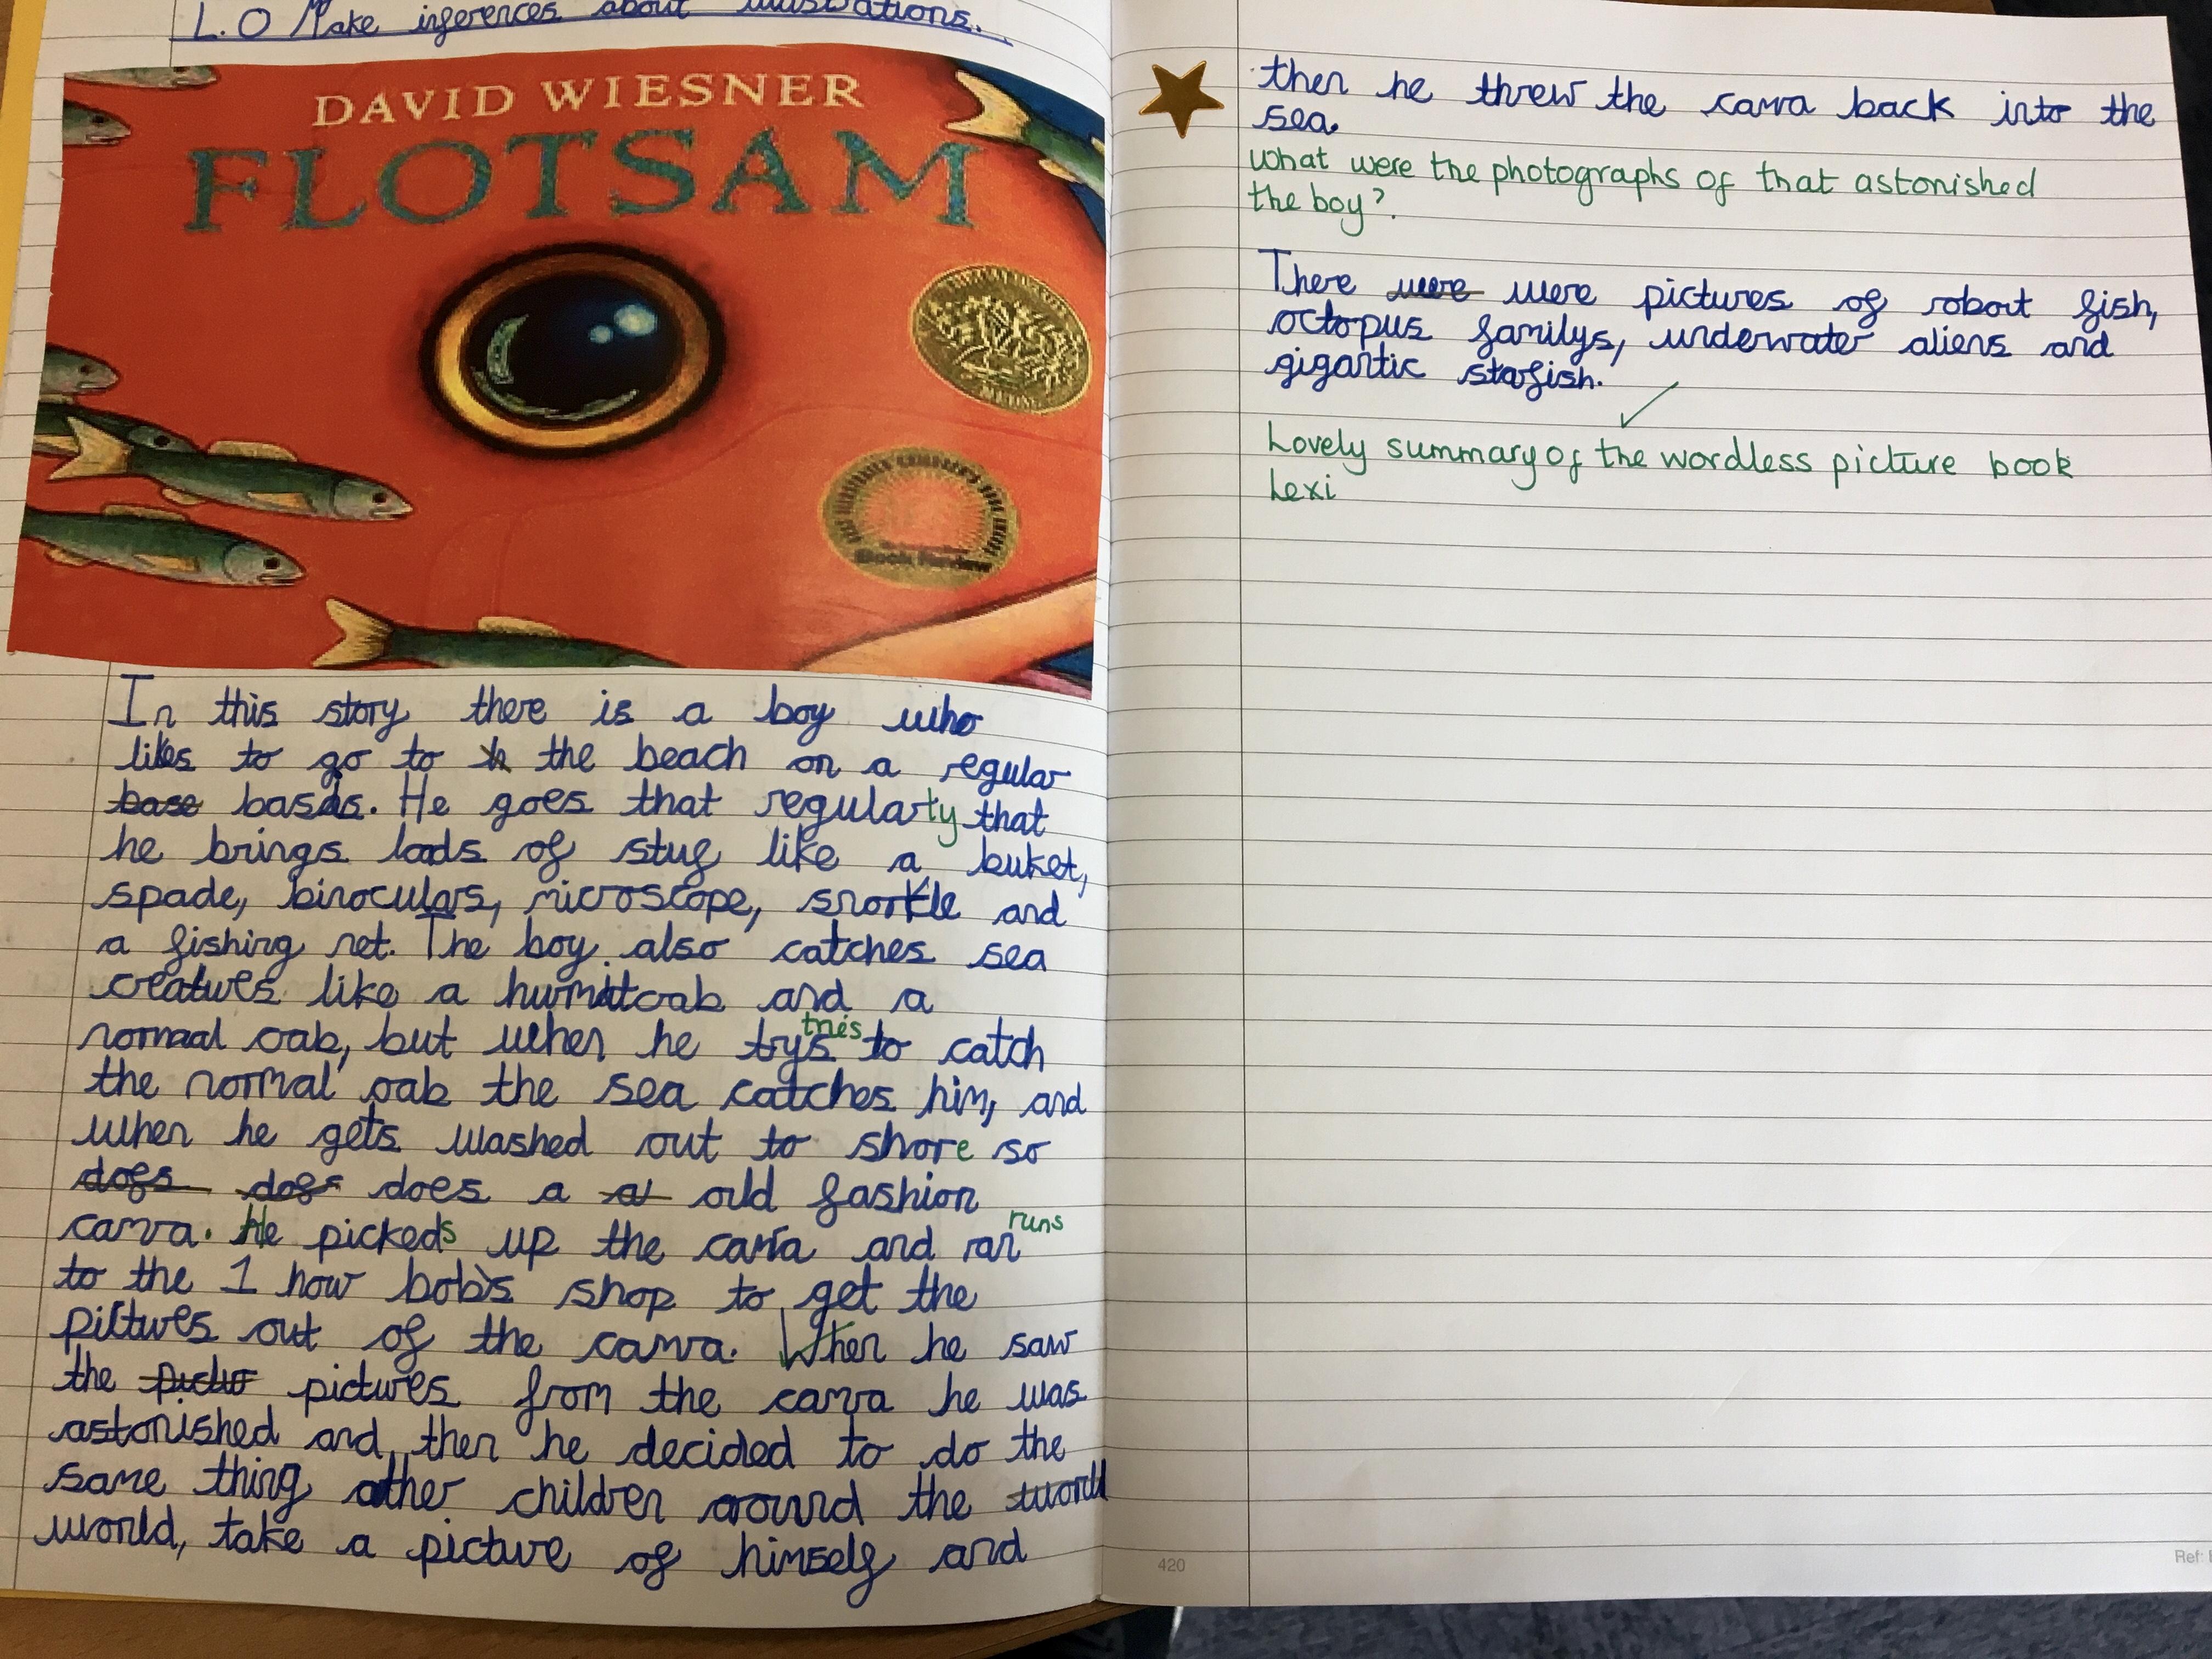 L.O Make inferences about illustrations.
DAVID WIESNER
FLOTSAM
In this story there is a boy who
likes to go to the beach on a regular
base basis. He goes that regularly that
he brings loads of stuf like a buket,
spade, binoculars, microscope, snorkle and
a fishing net. The boy also catches sea
creatures like a and a
normal crab, but when he trys tries to catch
the normal crab the sea catches him, and
when he gets washed out to shore so
does a old fashion
camra. He pickeds up the camra and ran runs
to the 1 how bob's shop to get the
pictures out of the camra. When he saw
the pictures from the camra he was
astonished and then he decided to do the
same thing other children around the
world, take a picture of himself and
then he threw the camra back into the
sea.
what were the photographs of that astonished
the boy?
There were were pictures of robort fish,
octopus familys, underwater aliens and
gigantic stafish.
Lovely summary of the wordless picture book
Lexi
420
Ref: